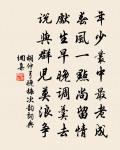 年少叢中最老成
春風一點尚留情
獻生早晚調羹去
說與群兒莫浪爭
胡仲弓晚梅次韵詞典
網集